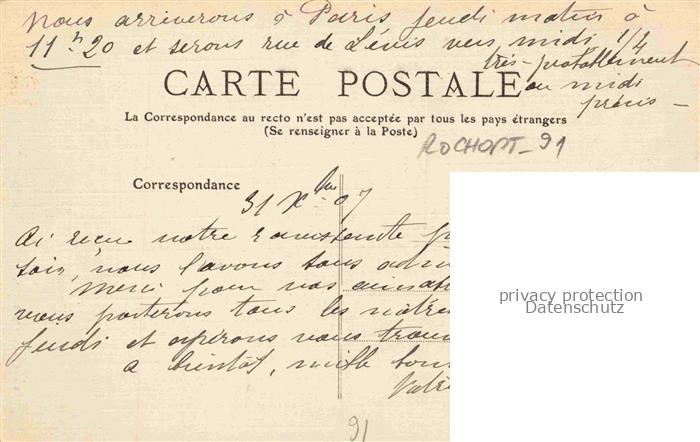 Nous arriverons à Paris jeudi matin à
11h20 et serons rue de Lévis vers midi 1/4
très-probablement
ou midi
précis -
CARTE POSTALE
La Correspondance au recto n'est pas acceptée par tous les pays étrangers
(Se renseigner à la Poste)
ROCHOPT_91
Correspondance
31 Xbre 07
Ai reçu votre ravissante
soir, nous l'avons tous
Merci pour vos
vous porterons tous les nôtres
jeudi et espérons vous
a bientôt, mille
Votre
91
privacy protection
Datenschutz